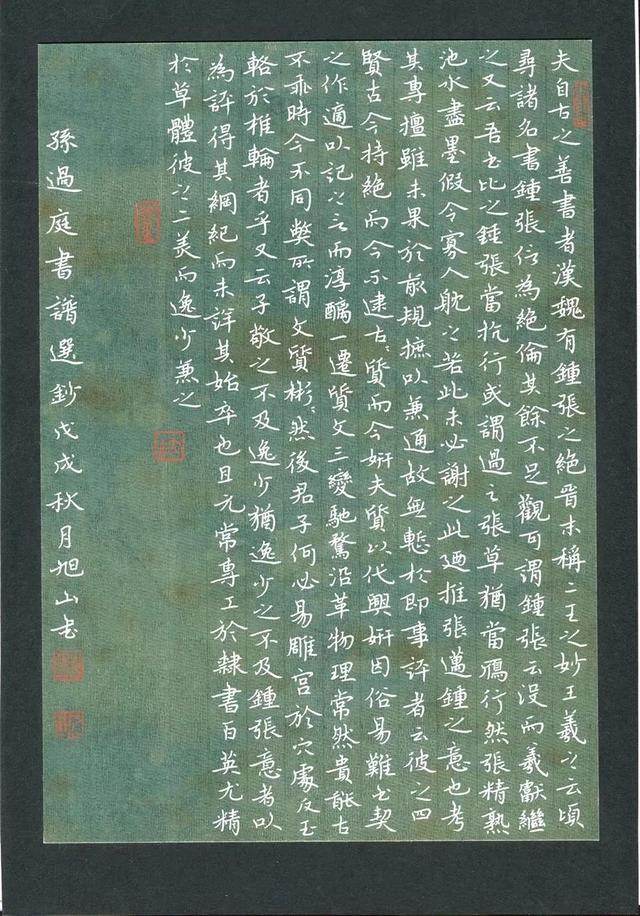 夫自古之善書者漢魏有鍾張之絕晉末稱二王之妙王羲之云頃
尋諸名書鍾張信為絕倫其餘不足觀可謂鍾張云沒而羲獻繼
之又云吾書比之鍾張當抗行或謂過之張草猶當鴈行然張精熟
池水盡墨假令寡人耽之若此未必謝之此廼推張邁鍾之意也考
其專擅雖未果於前規摭以兼通故無慙於即事評者云彼之四
賢古今持絕而今不逮古〻質而今妍夫質以代興妍因俗易難書契
之作適以記之言而淳醨一遷質文三變馳騖沿革物理常然貴能古
不乖時今不同獘所謂文質彬〻然後君子何必易雕宮於穴處反玉
輅於椎輪者乎又云子敬之不及逸少猶逸少之不及鍾張意者以
為評得其綱紀而未詳其始卒也且元常專工於隸書百英尤精
於草體彼之二美而逸少兼之
孫過庭書譜選鈔戊戌秋月旭山書